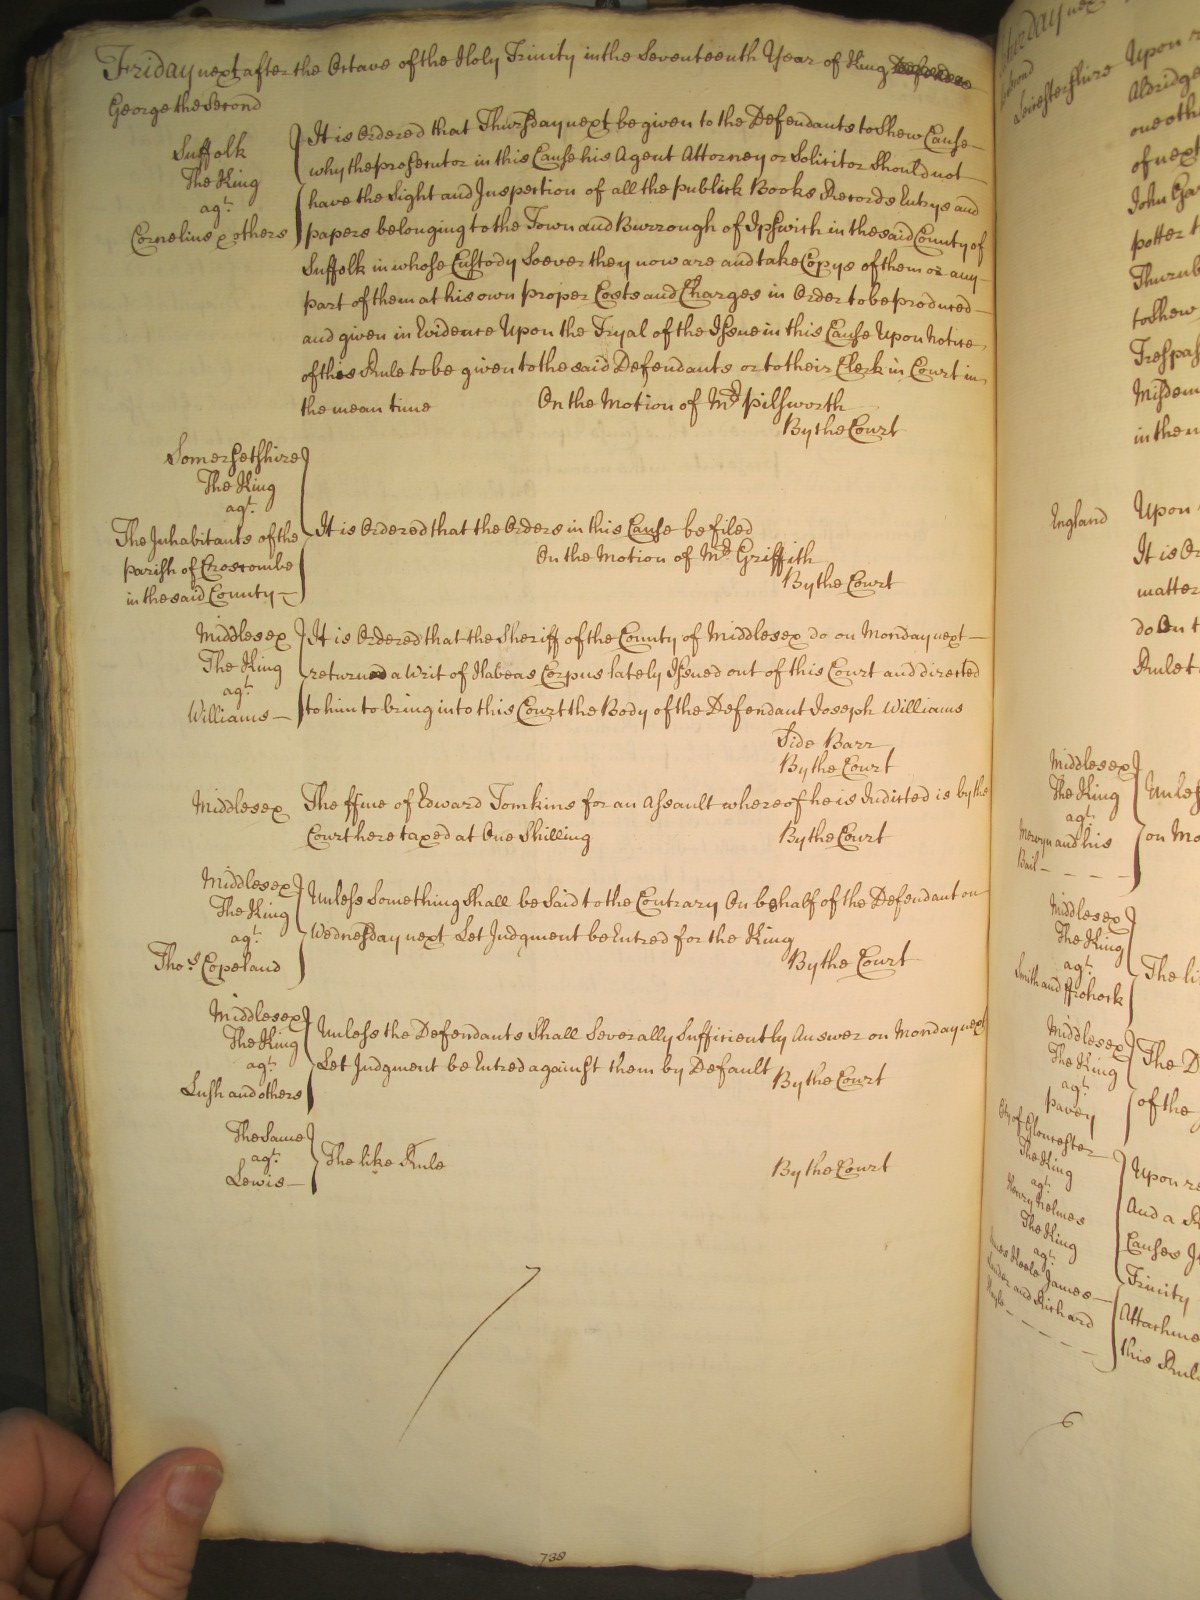 Friday next after the Octave of the Holy Trinity in the Seventeenth Year of King
George the Second
Suffolk
The King
agt.
Cornelius & others
It is Ordered that Thursday next be given to the Defendants to Shew Cause
why the prosecutor in this Cause his Agent Attorney or Solicitor Should not
have the Sight and Inspection of all the publick Books Records Entrys and
papers belonging to the Town and Burrough of Ipswich in the said County of
Suffolk in whose Custody Soever they now are and take Copys of them or any
part of them at his own proper Costs and Charges in Order to be produced
and given in Evidence Upon the Tryal of the Issue in this Cause Upon Notice
of this Rule to be given to the said Defendants or to their Clerk in Court in
the mean time On the Motion of Mr. Pilsworth
By the Court
Somersetshire
The King
agt.
The Inhabitants of the
parish of Croscombe
in the said County
It is Ordered that the Orders in this Cause be filed
On the Motion of Mr. Griffith
By the Court
Middlesex
The King
agt.
Williams
It is Ordered that the Sheriff of the County of Middlesex do on Monday next
return a Writ of Habeas Corpus lately Issued out of this Court and directed
to him to bring into this Court the Body of the Defendant Joseph Williams
Side Barr
By the Court
Middlesex The ffine of Edward Tomkins for an Assault whereof he is Indicted is by the
Court here taxed at One Shilling By the Court
Middlesex
The King
agt.
Thos. Copeland
Unless Something Shall be Said to the Contrary On behalf of the Defendant on
Wednesday next Let Judgment be Entred for the King
By the Court
Middlesex
The King
agt.
Lush and others
Unless the Defendants Shall Severally Sufficiently Answer on Monday next
Let Judgment be Entred against them by Default
By the Court
The Same
agt.
Lewis
The like Rule By the Court
738
Leicestershire
Upon
Aldridge
one
of next
John
potter
to Shew
Trespas
Misdem
in the
England Upon
It is Or
matter
do On
Rule
Middlesex
The King
agt.
and his
Bail
Unles
on Mo
Middlesex
The King
agt.
Smith and
The li
Middlesex
The King
agt.
Pavey
The D
of the
City of Gloucester
The King
agt.
Henry Holmes
The King
agt.
James
and Richard
Upon
And a
Causes
Trinity
Attachme
this Rul
6